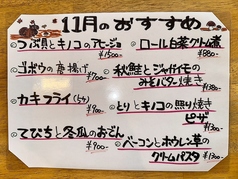 11月のおすすめ
◎つぶ貝とキノコのアヒージョ
¥1500-
◎ゴボウの唐揚げ
¥700-
◎カキフライ(5ケ)
¥900-
◎てびちと冬瓜のおでん
¥900-
◎ロール白菜クリーム煮
¥880-
◎秋鮭とジャガイモの
みそバター焼き
¥1380-
◎とりとキノコの照り焼き
ピザ
¥1300-
◎ベーコンとホウレン草の
クリームパスタ
¥1300-